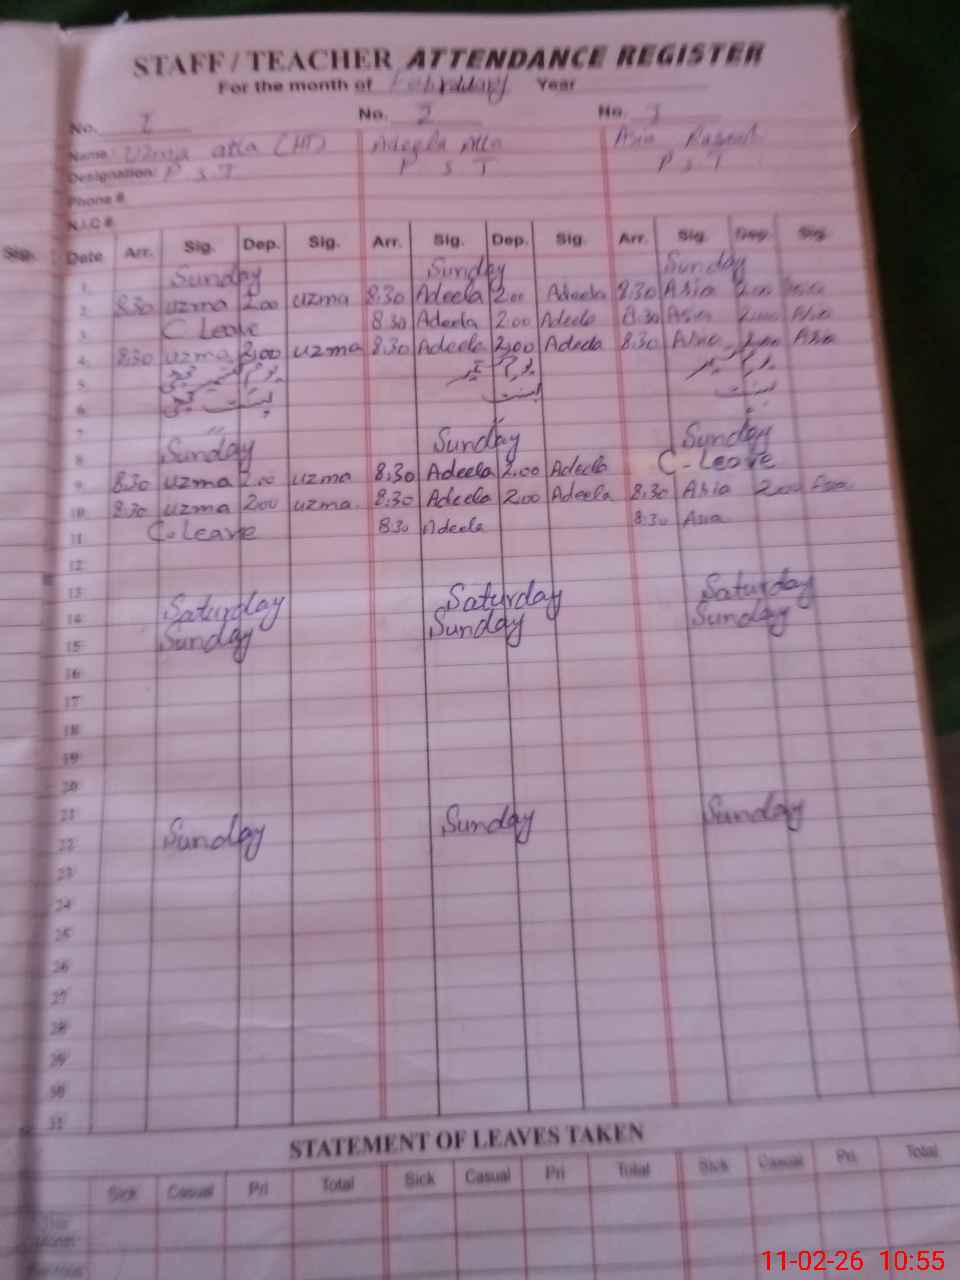 STAFF / TEACHER ATTENDANCE REGISTER
For the month of February Year
No. 1 No. 2 No. 3
Name: Uzma atta (HT) Adeela Atta Asia
Designation: P S T P S T P S T
Phone #
N.I.C #
Sig. Date Arr. Sig. Dep. Sig. Arr. Sig. Dep. Sig. Arr. Sig. Dep. Sig.
1. Sunday Sunday Sunday
2. 8:30 uzma 2:00 uzma 8:30 Adeela 2:00 Adeela 8:30 Asia 2:00 Asia
3. C Leave 8:30 Adeela 2:00 Adeela 8:30 Asia 2:00 Asia
4. 8:30 uzma 2:00 uzma 8:30 Adeela 2:00 Adeela 8:30 Asia 2:00 Asia
5.
6.
7.
8. Sunday Sunday Sunday
9. 8:30 uzma 2:00 uzma 8:30 Adeela 2:00 Adeela C-Leave
10. 8:30 uzma 2:00 uzma 8:30 Adeela 2:00 Adeela 8:30 Asia 2:00 Asia
11 C-Leave 8:30 Adeela 8:30 Asia
12
13
14 Saturday Saturday Saturday
15 Sunday Sunday Sunday
16
17
18
19
20
21
22 Sunday Sunday Sunday
23
24
25
26
27
28
29
30
31
STATEMENT OF LEAVES TAKEN
Sick Casual Pri Total Sick Casual Pri Total Sick Casual Pri Total
11-02-26 10:55